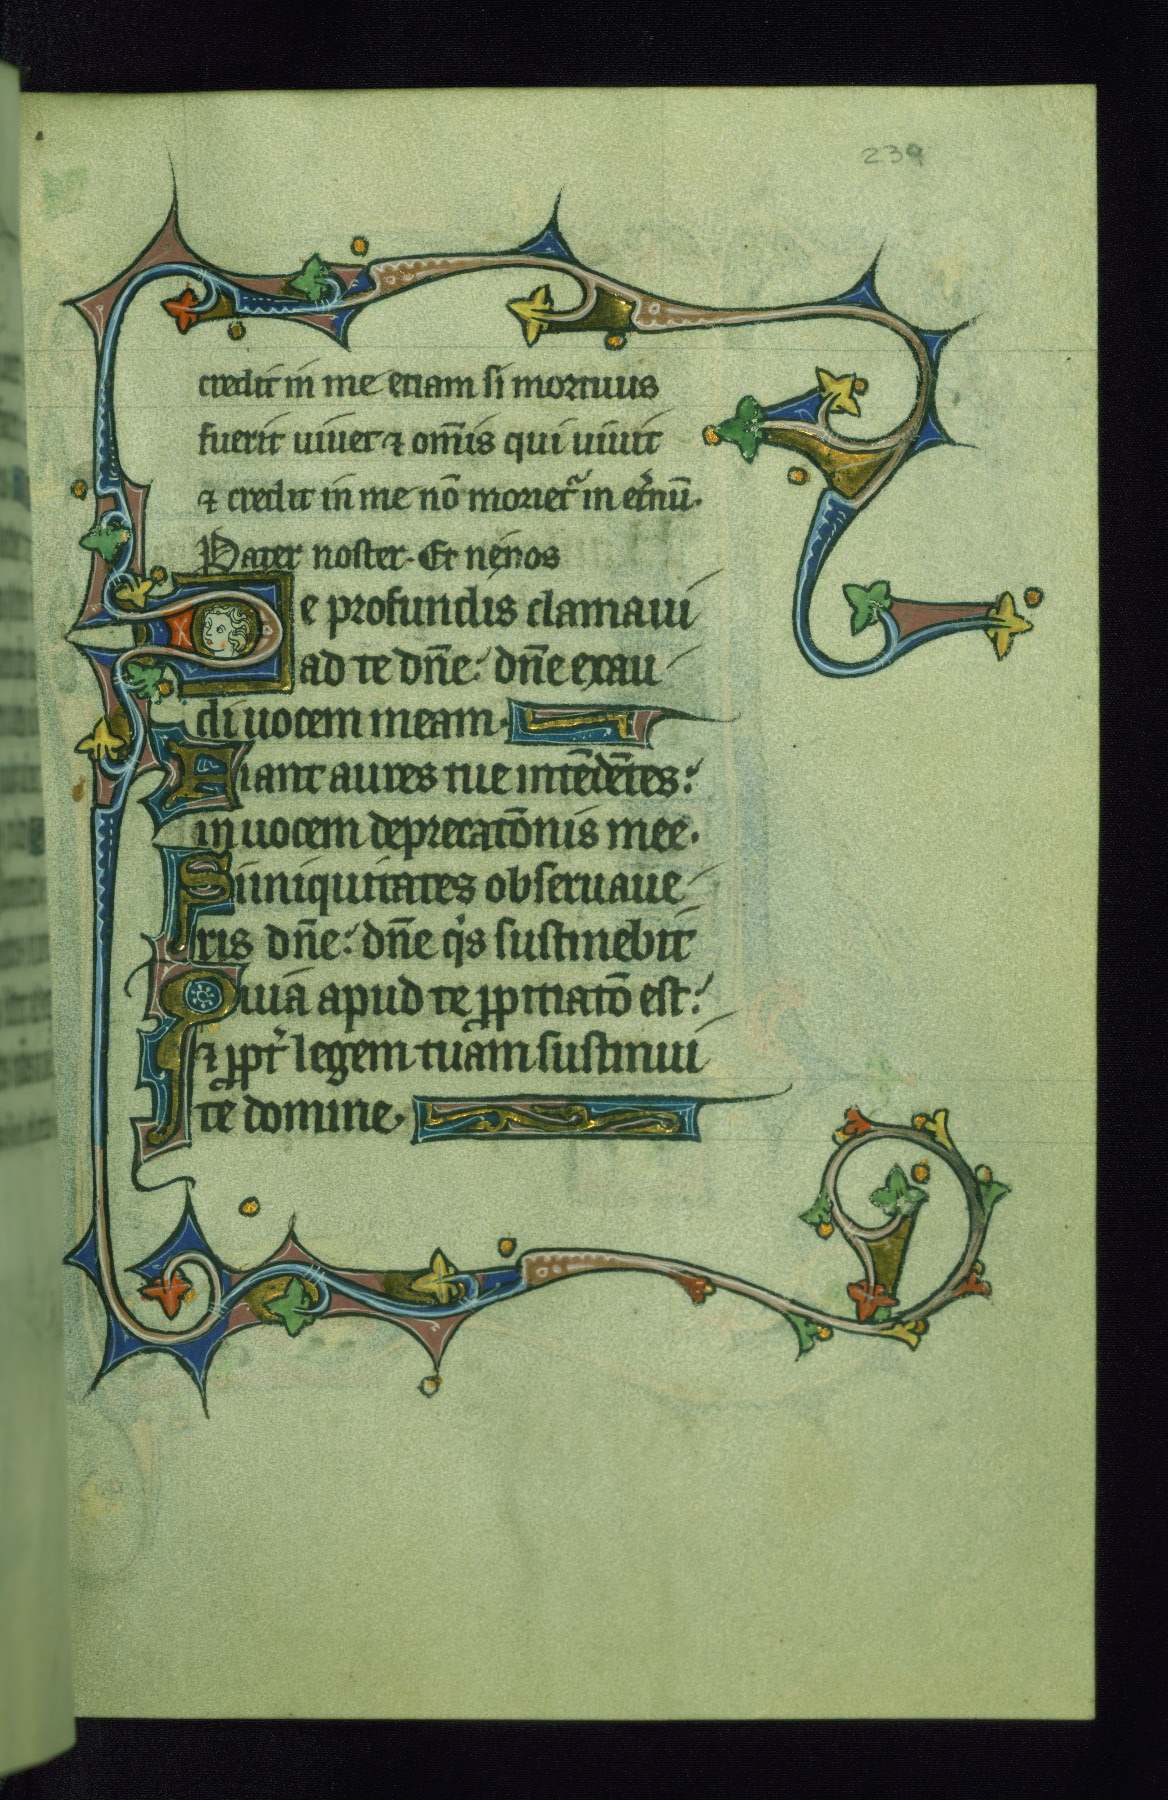 239
credit in me etiam si mortuus
fuerit uiuet ⁊ om̄is qui uiuit
⁊ credit in me nō moriet᷑ in et̾nū.
Pater noster. Et ne nos
De profundis clamaui
ad te dn̄e: dn̄e exau
di uocem meam.
Fiant aures tue intēdētes:
in uocem deprecatōnis mee.
Si iniquitates obseruaue
ris dn̄e: dn̄e qͥs sustinebit
Quiā apud te ꝓpitiatō est:
⁊ ꝓpt̾ legem tuam sustinui
tē domine.